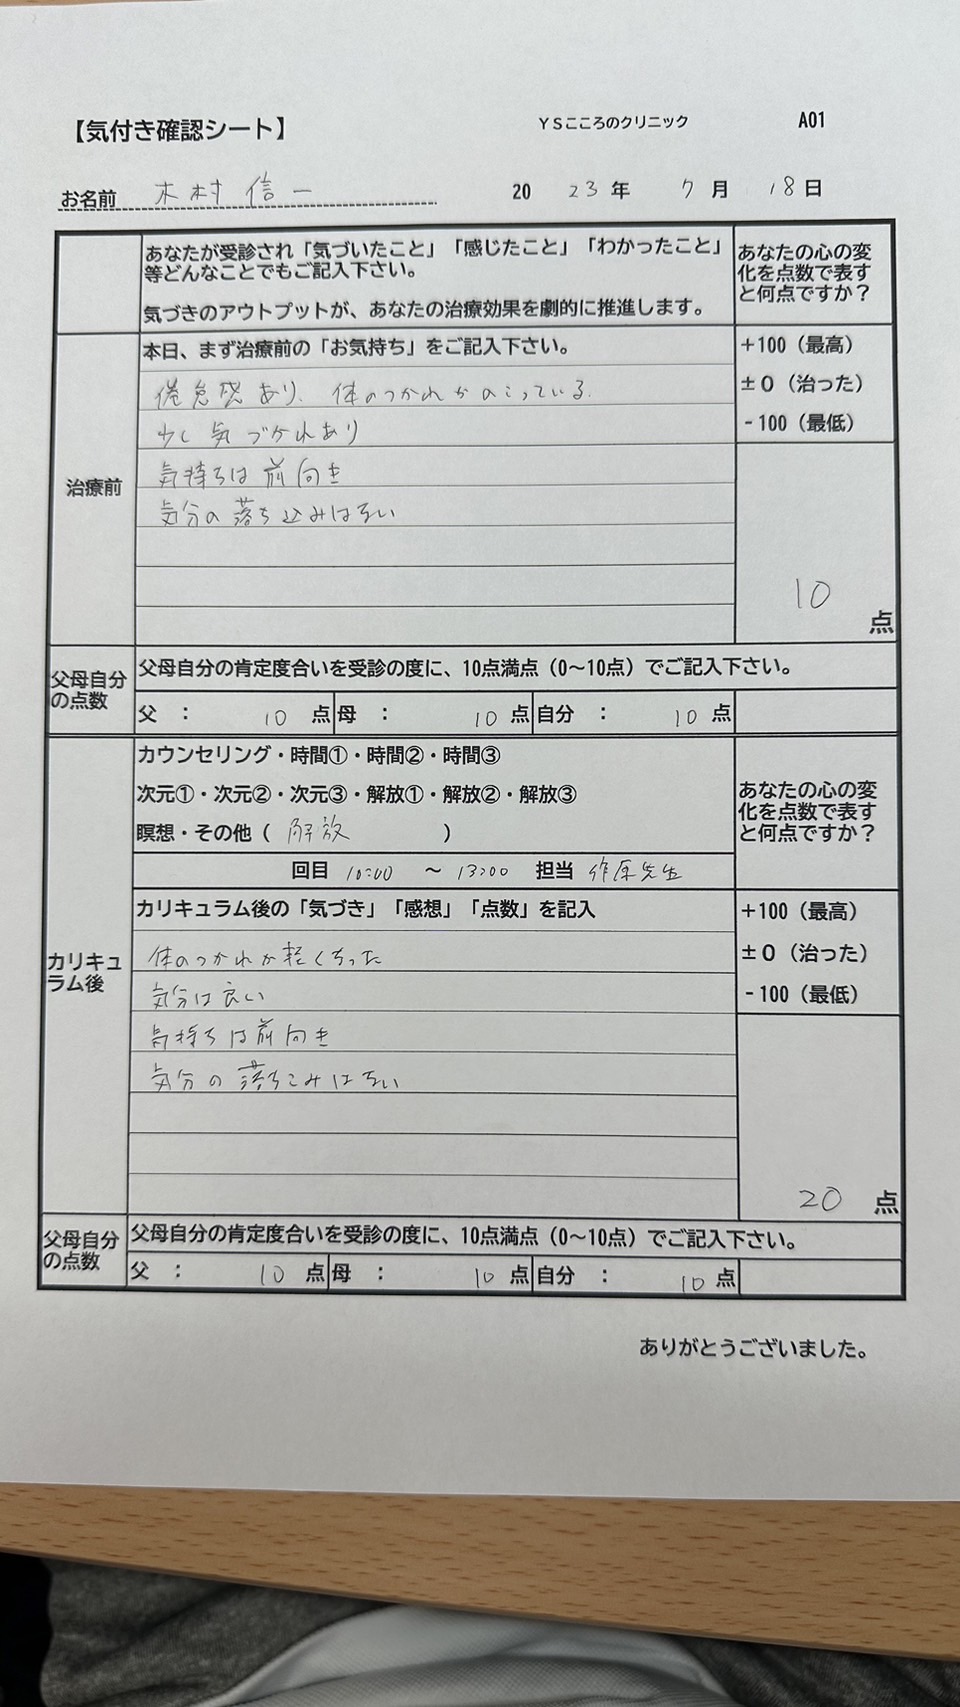 【気付き確認シート】 YSこころのクリニック A01
お名前 木村信一 2023年 7月 18日
あなたが受診され「気づいたこと」「感じたこと」「わかったこと」
等どんなことでもご記入下さい。
気づきのアウトプットが、あなたの治療効果を劇的に推進します。
あなたの心の変
化を点数で表す
と何点ですか？
治療前
本日、まず治療前の「お気持ち」をご記入下さい。
倦怠感あり、体のつかれがのこっている。
少し気づかれあり
気持ちは前向き
気分の落ち込みはない
+100（最高）
±0（治った）
-100（最低）
10点
父母自分
の点数
父母自分の肯定度合いを受診の度に、10点満点（0〜10点）でご記入下さい。
父 ： 10点 母 ： 10点 自分 ： 10点
カリキュ
ラム後
カウンセリング・時間①・時間②・時間③
次元①・次元②・次元③・解放①・解放②・解放③
瞑想・その他（ 解放 ）
回目 10:00 〜 13:00 担当 作原先生
あなたの心の変
化を点数で表す
と何点ですか？
カリキュラム後の「気づき」「感想」「点数」を記入
体のつかれが軽くなった
気分は良い
気持ちは前向き
気分の落ちこみはない
+100（最高）
±0（治った）
-100（最低）
20点
父母自分
の点数
父母自分の肯定度合いを受診の度に、10点満点（0〜10点）でご記入下さい。
父 ： 10点 母 ： 10点 自分 ： 10点
ありがとうございました。